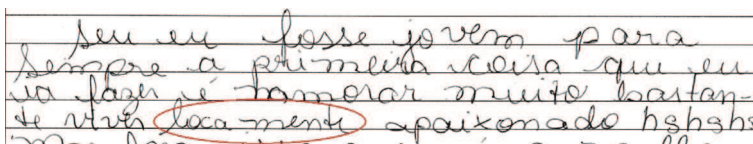 seu eu fosse jovem para
sempre a primeira coisa que eu
ia fazer é namorar muito bastan-
te viver loca mente apaixonado hshshs